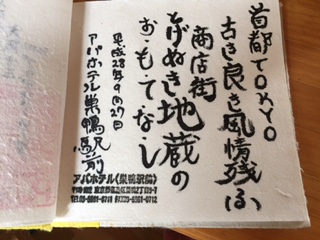 首都TOKYO
古き良き風情残る
商店街
とげぬき地蔵の
お・も・て・な・し
平成28年9月27日
アパホテル巣鴨駅前
アパホテル〈巣鴨駅前〉